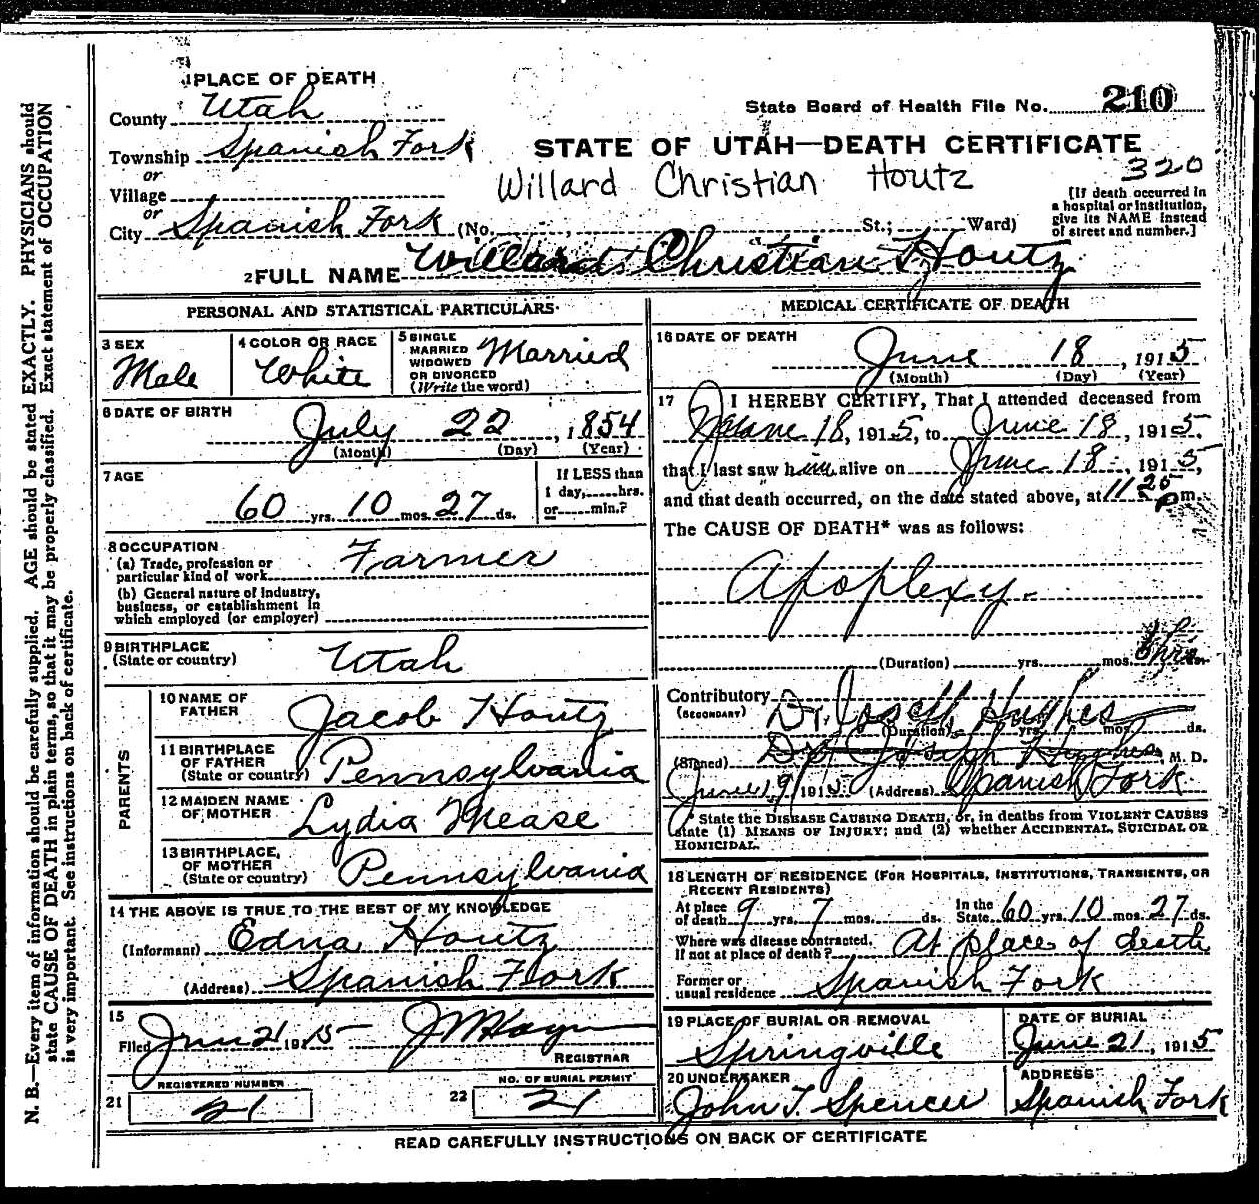 1 PLACE OF DEATH
County Utah
State Board of Health File No. 210
Township Spanish Fork
STATE OF UTAH—DEATH CERTIFICATE
or
Village
Willard Christian Houtz
320
or
City Spanish Fork (No. St.; Ward)
[If death occurred in
a hospital or institution,
give its NAME instead
of street and number.]
2 FULL NAME Willard Christian Houtz
PERSONAL AND STATISTICAL PARTICULARS
3 SEX
Male
4 COLOR OR RACE
White
5 SINGLE
MARRIED
WIDOWED
OR DIVORCED
(Write the word)
Married
6 DATE OF BIRTH
July 22, 1854
(Month) (Day) (Year)
7 AGE
60 yrs. 10 mos. 27 ds.
If LESS than
1 day, hrs.
or min.?
8 OCCUPATION
(a) Trade, profession or
particular kind of work Farmer
(b) General nature of Industry,
business, or establishment in
which employed (or employer)
9 BIRTHPLACE
(State or country) Utah
PARENTS
10 NAME OF
FATHER Jacob Houtz
11 BIRTHPLACE
OF FATHER
(State or country) Pennsylvania
12 MAIDEN NAME
OF MOTHER Lydia Mease
13 BIRTHPLACE,
OF MOTHER
(State or country) Pennsylvania
14 THE ABOVE IS TRUE TO THE BEST OF MY KNOWLEDGE
(Informant) Edna Houtz
(Address) Spanish Fork
15
Filed Jun 21 1915
REGISTRAR
REGISTERED NUMBER
21 21
NO. OF BURIAL PERMIT
22 21
MEDICAL CERTIFICATE OF DEATH
16 DATE OF DEATH
June 18, 1915
(Month) (Day) (Year)
17 I HEREBY CERTIFY, That I attended deceased from
June 18, 1915, to June 18, 1915,
that I last saw him alive on June 18, 1915,
and that death occurred, on the date stated above, at 11 20 P m.
The CAUSE OF DEATH* was as follows:
Apoplexy.
(Duration) yrs. mos. hrs. ds.
Contributory
(SECONDARY) Dr. Joseph Hughes
(Duration) yrs. mos. ds.
(Signed) Dr. Joseph Hughes M. D.
June 19, 1915 (Address) Spanish Fork
* State the DISEASE CAUSING DEATH, or, in deaths from VIOLENT CAUSES
state (1) MEANS OF INJURY; and (2) whether ACCIDENTAL, SUICIDAL OR
HOMICIDAL.
18 LENGTH OF RESIDENCE (FOR HOSPITALS, INSTITUTIONS, TRANSIENTS, OR
RECENT RESIDENTS)
At place
of death 9 yrs. 7 mos. ds.
In the
State 60 yrs. 10 mos. 27 ds.
Where was disease contracted,
If not at place of death? At place of death
Former or
usual residence Spanish Fork
19 PLACE OF BURIAL OR REMOVAL
Springville
DATE OF BURIAL
June 21, 1915
20 UNDERTAKER
John T. Spencer
ADDRESS
Spanish Fork
READ CAREFULLY INSTRUCTIONS ON BACK OF CERTIFICATE
N. B.—Every item of information should be carefully supplied. AGE should be stated EXACTLY. PHYSICIANS should
state CAUSE OF DEATH in plain terms, so that it may be properly classified. Exact statement of OCCUPATION
is very important. See instructions on back of certificate.